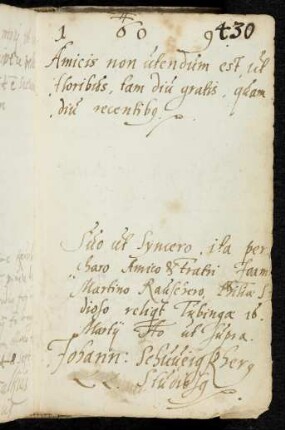 1 6 0 9 430
Amicis non utendum est, ut
floribus, tam diu gratis, quam
diu recentibg.
Suo ut syncero, ita per
charo Amico & Fratri Joanni
Martino
dioso reliqt Tubingæ 16.
Martij ut supra.
Johann:
Studiosg